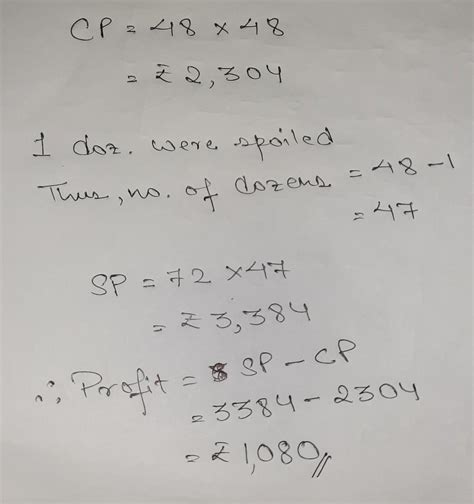 CP = 48 x 48
= ₹ 2,304
1 doz. were spoiled
Thus, no. of dozens = 48 - 1
= 47
SP = 72 x 47
= ₹ 3,384
∴ Profit = SP - CP
= 3384 - 2304
= ₹ 1,080 //